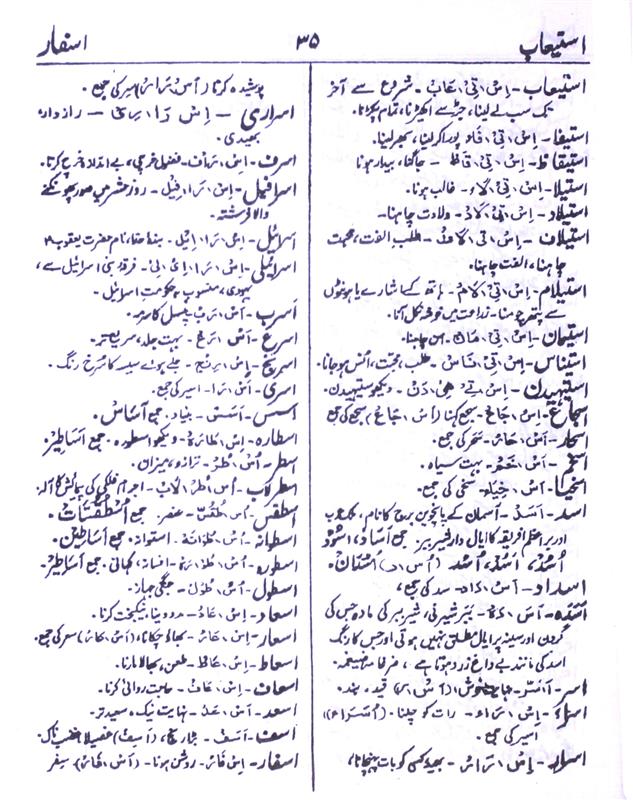 استیعاب
۳۵
اسفار
استیعاب - اِسْ ، تِیْ ، عَابْ - شروع سے آخر
تک سب لے لینا، جڑ سے اکھیڑنا، تمام پکڑنا.
استیفا - اِسْ ، تِیْ ، فَاءْ پورا کر لینا، بھر لینا.
استیقاظ - اِسْ ، تِیْ ، قَاظْ - جاگنا، بیدار ہونا
استیلا - اِسْ ، تِیْ ، لَاءْ - غالب ہونا.
استیلاد - اِسْ ، تِیْ ، لَادْ - ولادت چاہنا -
استیلاف - اِسْ ، تِیْ ، لَافْ - طلب الفت، محبت
چاہنا، الفت چاہنا.
استیلام - اِسْ ، تِیْ ، لَامْ - ہاتھ کے اشارے یا ہونٹوں
سے پتھر چومنا - زراعت میں خوشہ نکل آنا.
استیمان - اِسْ ، تِیْ ، مَانْ - امن چاہنا.
استیناس - اِسْ ، تِیْ ، نَاسْ - طلب، محبت، اُنس ہو جانا.
استیہیدن - اِسْ ، تے ، ھِیْ ، دَنْ - دیکھو ستیہیدن.
اسجاع - اِسْ ، جَاعْ - سجع کہنا (اَسْ ، جَاعْ) سجع کی جمع
اسحار - اَسْ ، حَارْ - سَحَر کی جمع.
اسحم - اَسْ ، حَمْ - بہت سیاہ.
اسخیا - اَسْ ، خِیَاءْ - سخی کی جمع.
اسد - اَسَدْ - آسمان کے پانچویں برج کا نام،
اور بر اعظم افریقہ کا ایال دار شیر ببر. جمع آسَاد، اُسُوْد
اُسُدْ، اُسْدْ،
اسداد - اَسْ ، دَادْ - سد کی جمع،
اسدہ - اَسَ ، دَہْ - ببر شیرنی، شیر ببر کی مادہ جس کی
گردن اور سینہ پر ایال مطلق نہیں ہوتی اور جس کا رنگ
اسد کی مانند بے داغ زرد ہوتا ہے،
اسر - اَسْر - (اَ سْ رْ) قید، بند.
اسراء - اِسْ ، رَاءْ - رات کو چلنا - (اُسَرَاءْ)
اسیر کی جمع.
اسرار - اِسْ ، رَارْ - بھید کسی کو بات پہنچانا،
پوشیدہ کرنا (اَسْ ، رَارْ) سِر کی جمع.
اسراری - اِسْ ، رَا ، رِیْ - رازدار،
بھیدی.
اسرف - اِسْ ، رَافْ - فضول خرچی، بے اندازہ خرچ کرنا.
اسرافیل - اِسْ ، رَا ، فِیْل - روز حشر میں صور پھونکنے
والا فرشتہ.
اسرائیل - اِسْ ، رَا ، اِیْل - بندۂ خدا، نام حضرت یعقوبؑ
اسرائیلی - اِسْ ، رَا ، اِیْ ، لِیْ - فرقۂ بنی اسرائیل سے،
یہودی، منسوب بہ حکومتِ اسرائیل -
اسرب - اَسْ ، رَبْ پنسل کا سرمہ.
اسرع - اَسْ ، رَعْ - بہت جلد، سریع تر.
اسرنج - اِسْ ، رِنْج - جلے ہوئے سیسہ کا سرخ رنگ.
اسری - اَسْ ، رَا - اسیر کی جمع.
اسس - اَسَسْ - بنیاد - جمع آسَاس.
اسطارہ - اِسْ ، طَارَہْ - دیکھو اسطورہ. جمع اَسَاطِیْر.
اسطر - اُسْ ، طُرْ - ترازو، میزان.
اسطرلاب - اُسْ ، طُرْ ، لَابْ - اجرام فلکی کی پیمائش کا آلہ.
اسطقس - اُسْ ، طُقُسّ - عنصر. جمع اُسْطُقُسَّات.
اسطوانہ - اُسْ ، طُوَانَہْ - استوانہ. جمع اَسَاطِیْن.
اسطورہ - اُسْ ، طُوْ ، رَہْ - افسانہ، کہانی. جمع اَسَاطِیْر.
اسطول - اُسْ ، طُوْل - جنگی جہاز.
اسعاد - اِسْ ، عَادْ - مدد دینا، نیک بخت کرنا.
اسعار - اِسْ ، عَارْ - بھاؤ چکانا، (اَسْ ، عَارْ) سعر کی جمع.
اسعاط - اِسْ ، عَاطْ - طعن، بھالا مارنا.
اسعاف - اِسْ ، عَافْ - حاجت روائی کرنا.
اسعد - اَسْ ، عَدْ - نہایت نیک، سعید تر.
اسف - اَسَفْ - رنج، (اَسِفْ)
اسفار - اِسْ ، فَارْ - روشن ہونا - (اَسْ ، فَارْ) سِفر